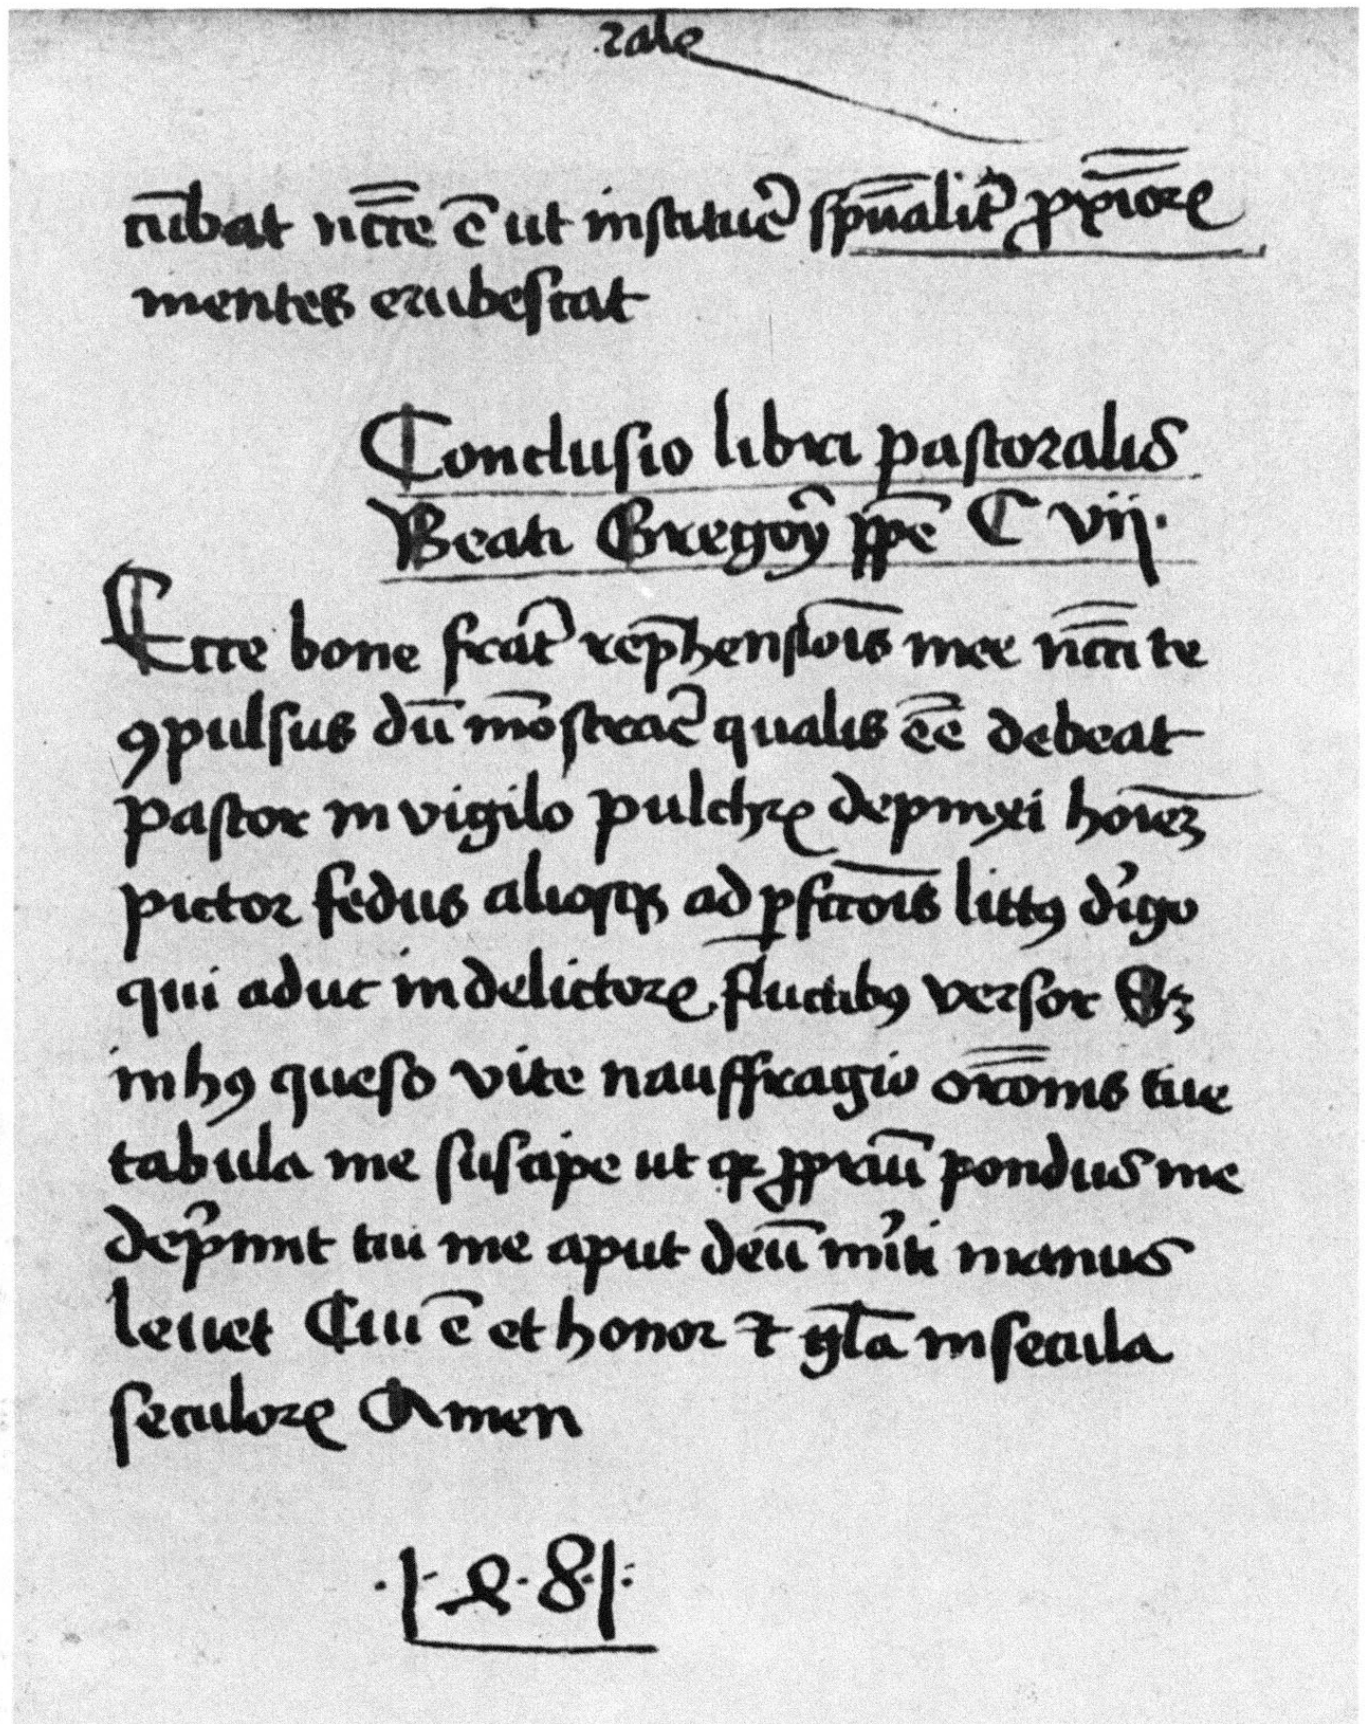 rale
cūbat nc̄cē ē ut instituc̄ sp̄ualit͛ ꝓxīorꝝ
mentes erubescat
Conclusio libri pastoralis
Beati Gregoꝝ̄ pp̄e C vij.
Ecce bone frat͛ rep̄hensiōīs mee nc̄c̄i te
ꝯpulsus dū mōstrar͛ qualis ēē debeat
pastor in vigilo pulchrꝝ depinxi hoīeꝫ
pictor fedus aliosqꝫ ad ꝑfcc̄oīs littꝯ dirigo
qui aduc in delictorꝝ fluctibꝯ versor Sꝫ
in hꝯ queso vite nauffragio or̄onis tue
tabula me suscipe ut qꝛ ꝓpriū pondus me
dep̄mit tui me aput deū mīti manus
levet Cui ē et honor ⁊ gl̄a in secula
seculorꝝ Amen
1 4 8 1